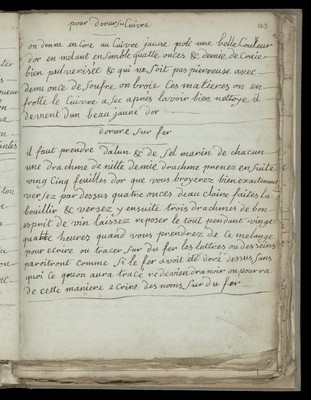 pour dorer su Cuivre
on donne en core au Cuivre jaune poli une belle Couleur
dor en melant ensemble quatre onces & demie de Craie
bien pulverisée & qui ne soit pas pierreuse avec
demi once de soufre on broie Ces matieres on en
frotte le Cuivre a sec apres lavoir bien nettoye il
devient dun beau jaune dor
dorure sur fer
il faut prendre dalun & de sel marin de chacun
une drachme de nitre demie drachme prenez en suite
vingt Cinq feuilles dor que vous broyerez bien exactement
versez par dessus quatre onces deau claire faites la
bouillir & versez y ensuite trois drachmes de bon
esprit de vin laissez reposer le tout pendant vingt
quatre heures quand vous prendrez de ce melange
pour ecrire ou tracer sur du fer les lettres ou desseins
paroitront comme si le fer avoit eté doré dessus sans
quoi ce quon aura tracé redeviendra noir on pourra
de cette maniere ecrire des noms sur du fer